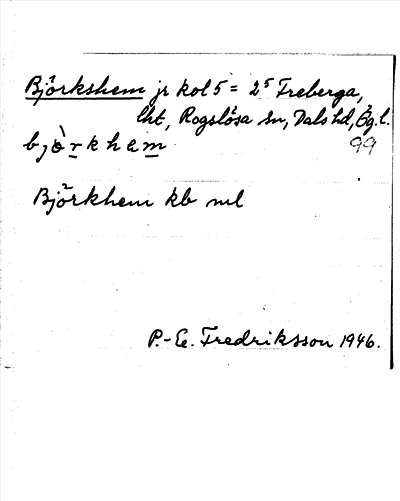 Björkshem jr kol 5 = 2⁵ Freberga,
lht, Rogslösa sn, Dals hd, Ög. l.
bjö̀rkhem 99
Björkhem kb ml
P.-E. Fredriksson 1946.